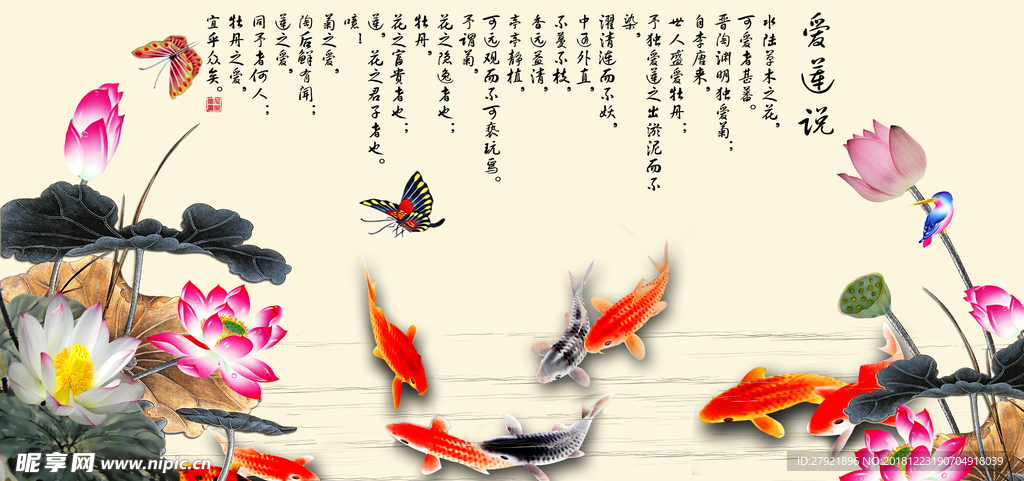 爱莲说
水陆草木之花，
可爱者甚蕃。
晋陶渊明独爱菊；
自李唐来，
世人盛爱牡丹；
予独爱莲之出淤泥而不
染，
濯清涟而不妖，
中通外直，
不蔓不枝，
香远益清，
亭亭静植，
可远观而不可亵玩焉。
予谓菊，
花之隐逸者也；
牡丹，
花之富貴者也；
莲，花之君子者也。
噫！
菊之爱，
陶后鲜有闻；
莲之爱，
同予者何人；
牡丹之爱，
宜乎众矣。
昵享网 www.nipic.cn
ID:27921895 NO:20181223190704918039